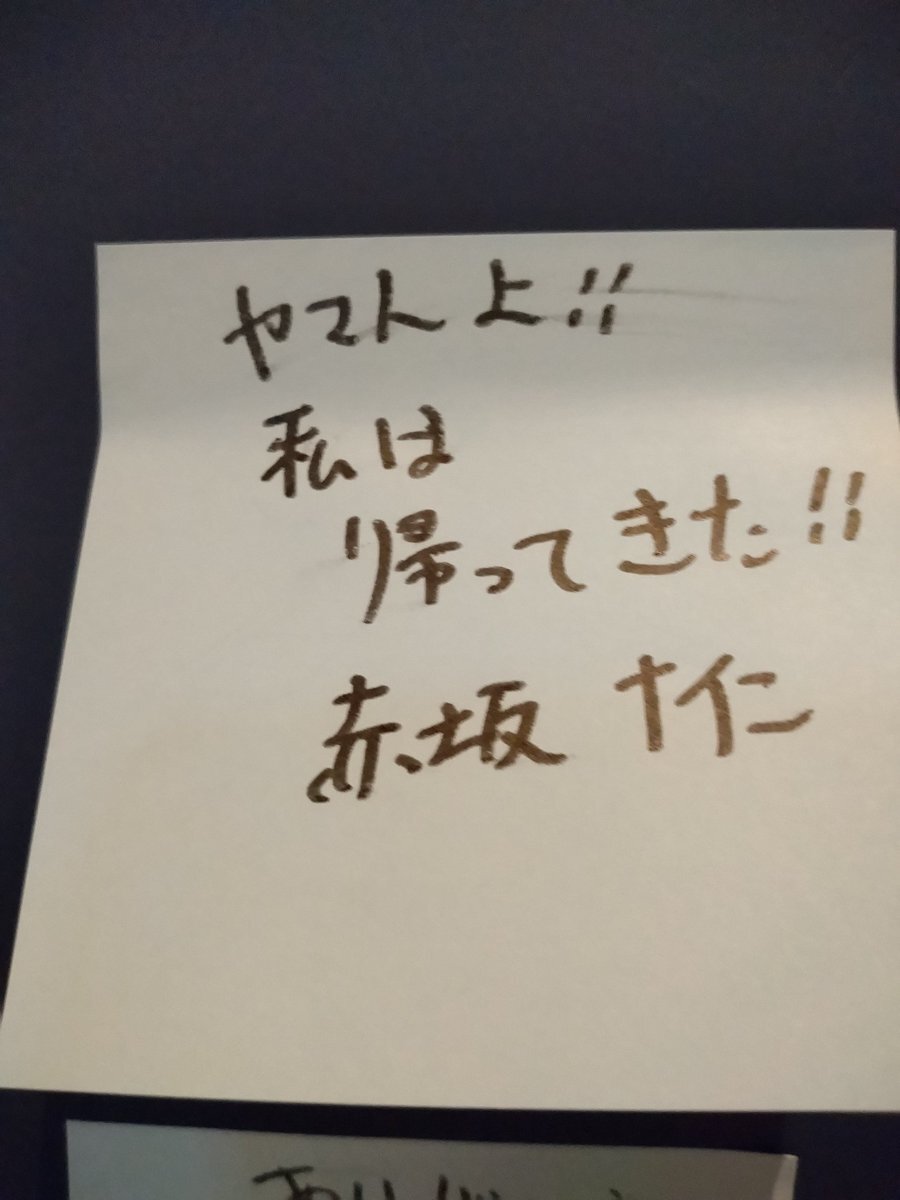 ヤマトよ!!
私は
帰ってきた!!
赤坂 ナイン